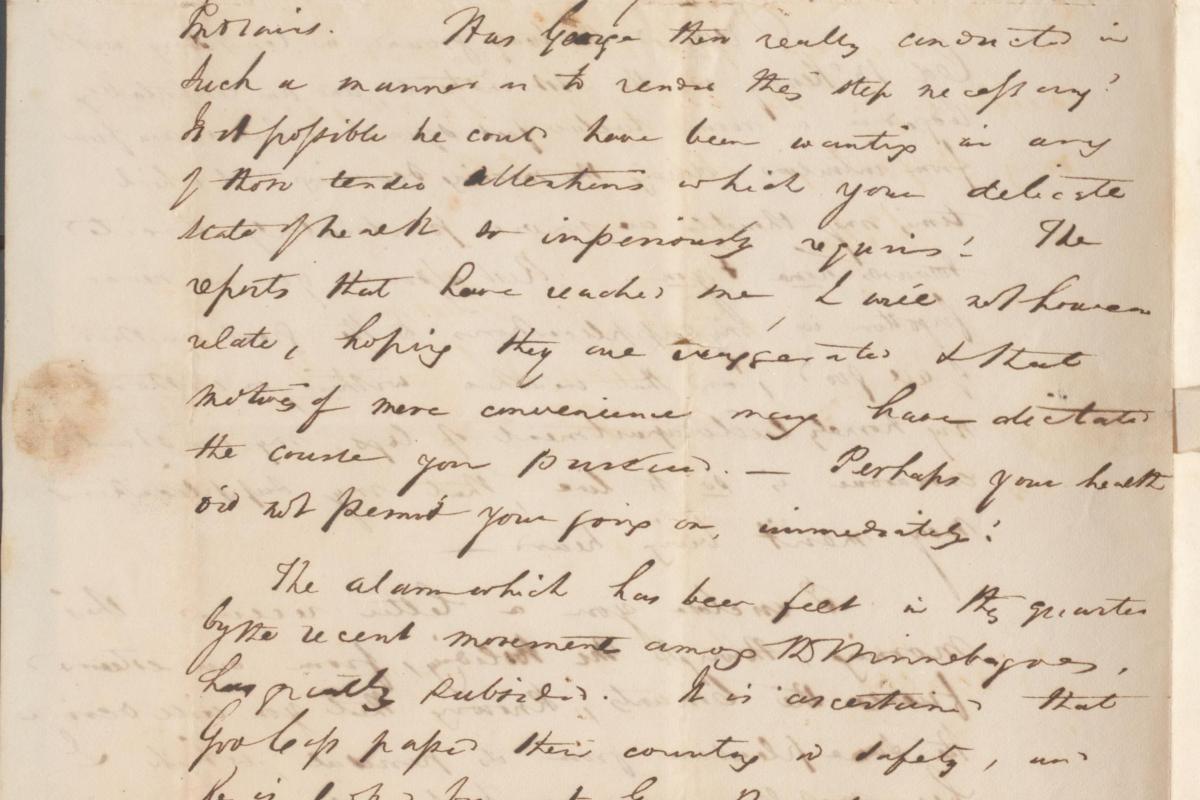 Has George then really conducted in
such a manner as to render this step necessary?
Is it possible he could have been wanting in any
of those tender attentions which your delicate
state of health so imperiously requires! The
reports that have reached me, I will not however
relate, hoping they are exaggerated & that
motives of mere convenience may have dictated
the course you pursued. — Perhaps your health
did not permit your going on, immediately!
The alarm which has been felt in this quarter
by the recent movement among the Winnebagoes,
has greatly subsided. It is ascertained that
Gov Cass passed their country in safety, and